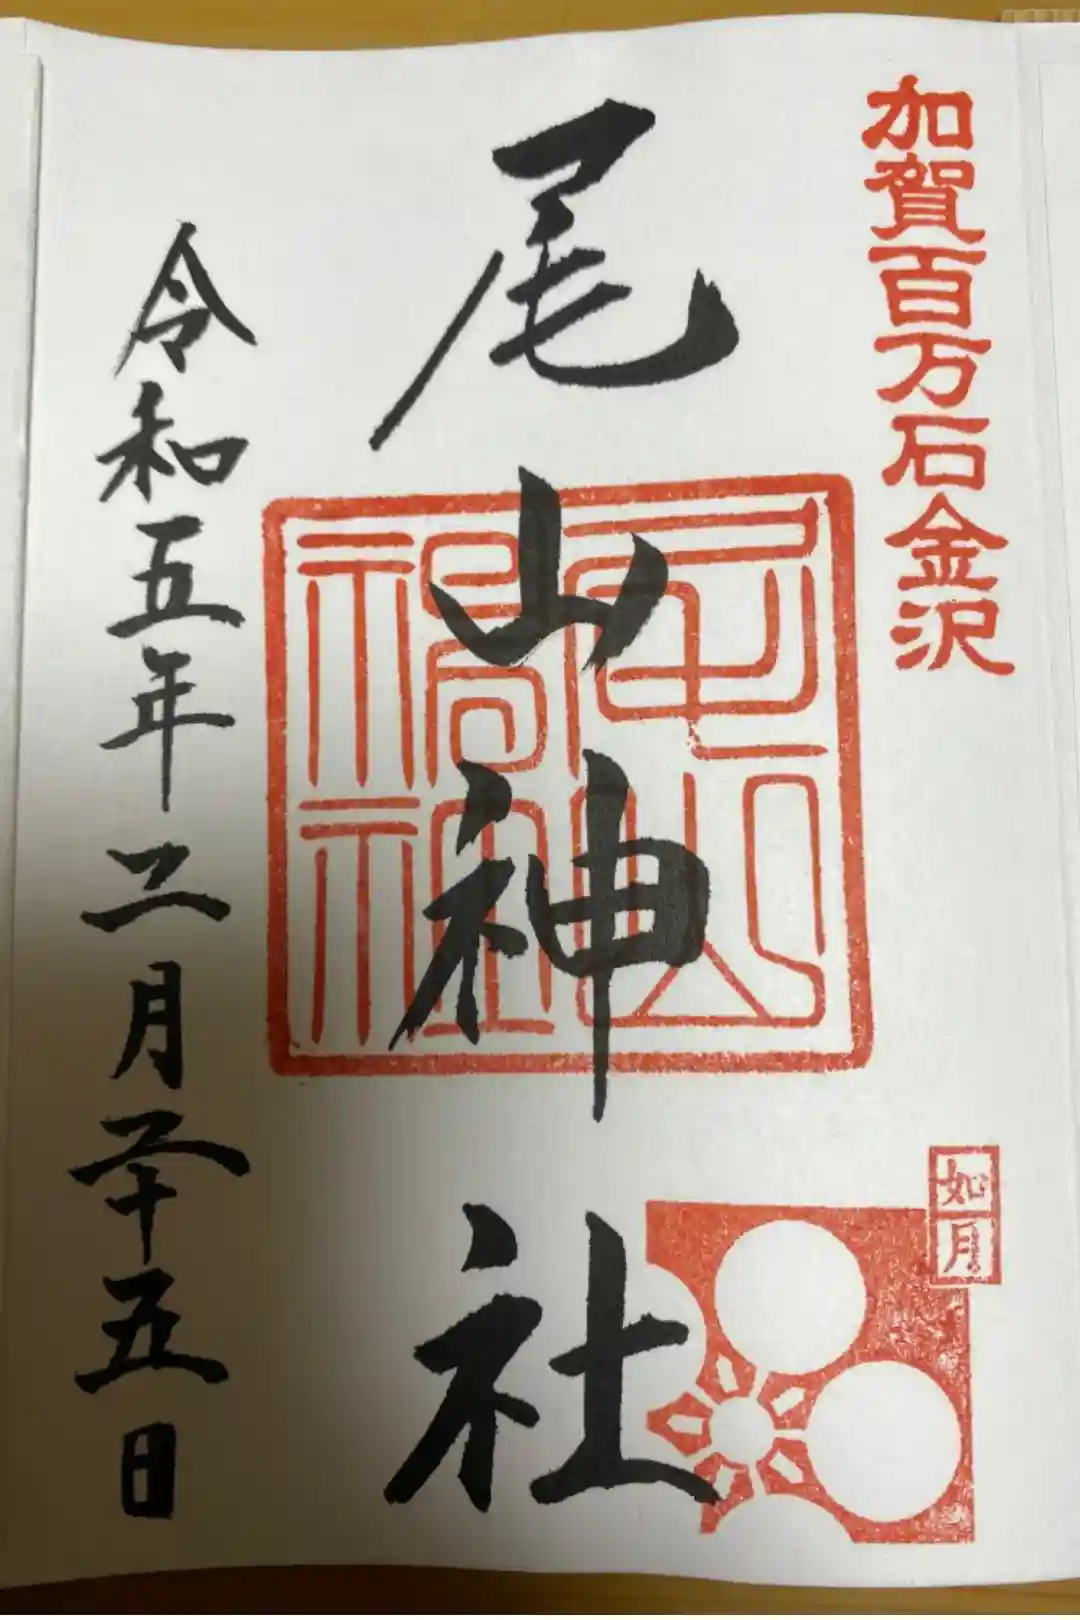 加賀百万石金沢
如月
尾山神社
尾山神社
令和五年二月二十五日